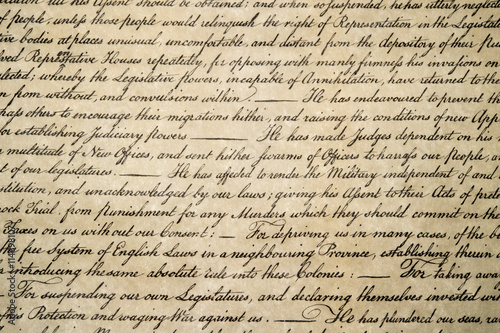 till his Assent should be obtained; and when so suspended, he has utterly neglect
of people, unless those people would relinquish the right of Representation in the Legislat
tive bodies at places unusual, uncomfortable, and distant from the depository of their Pu
lved Representative Houses repeatedly, for opposing with manly firmness his invasions on
lected; whereby the Legislative powers, incapable of Annihilation, have returned to th
n from without, and convulsions within. — He has endeavoured to prevent th
pass others to encourage their migrations hither, and raising the conditions of new App
for establishing Judiciary powers — He has made Judges dependent on his
multitude of New Offices, and sent hither swarms of Officers to harrass our people, a
t of our legislatures. — He has affected to render the Military independent of and
stitution, and unacknowledged by our laws; giving his Assent to their Acts of prete
ock Trial, from punishment for any Murders which they should commit on th
Taxes on us without our Consent: — For depriving us in many cases, of the be
free System of English Laws in a neighbouring Province, establishing therein a
introducing the same absolute rule into these Colonies: — For taking awa
For suspending our own Legislatures, and declaring themselves invested wi
his Protection and waging War against us. — He has plundered our seas, ra
Adobe Stock